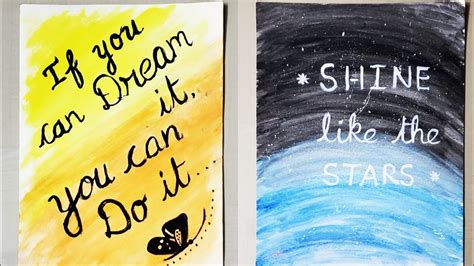 If you
can Dream
it,
you can
Do it...
* SHINE
like the
STARS *